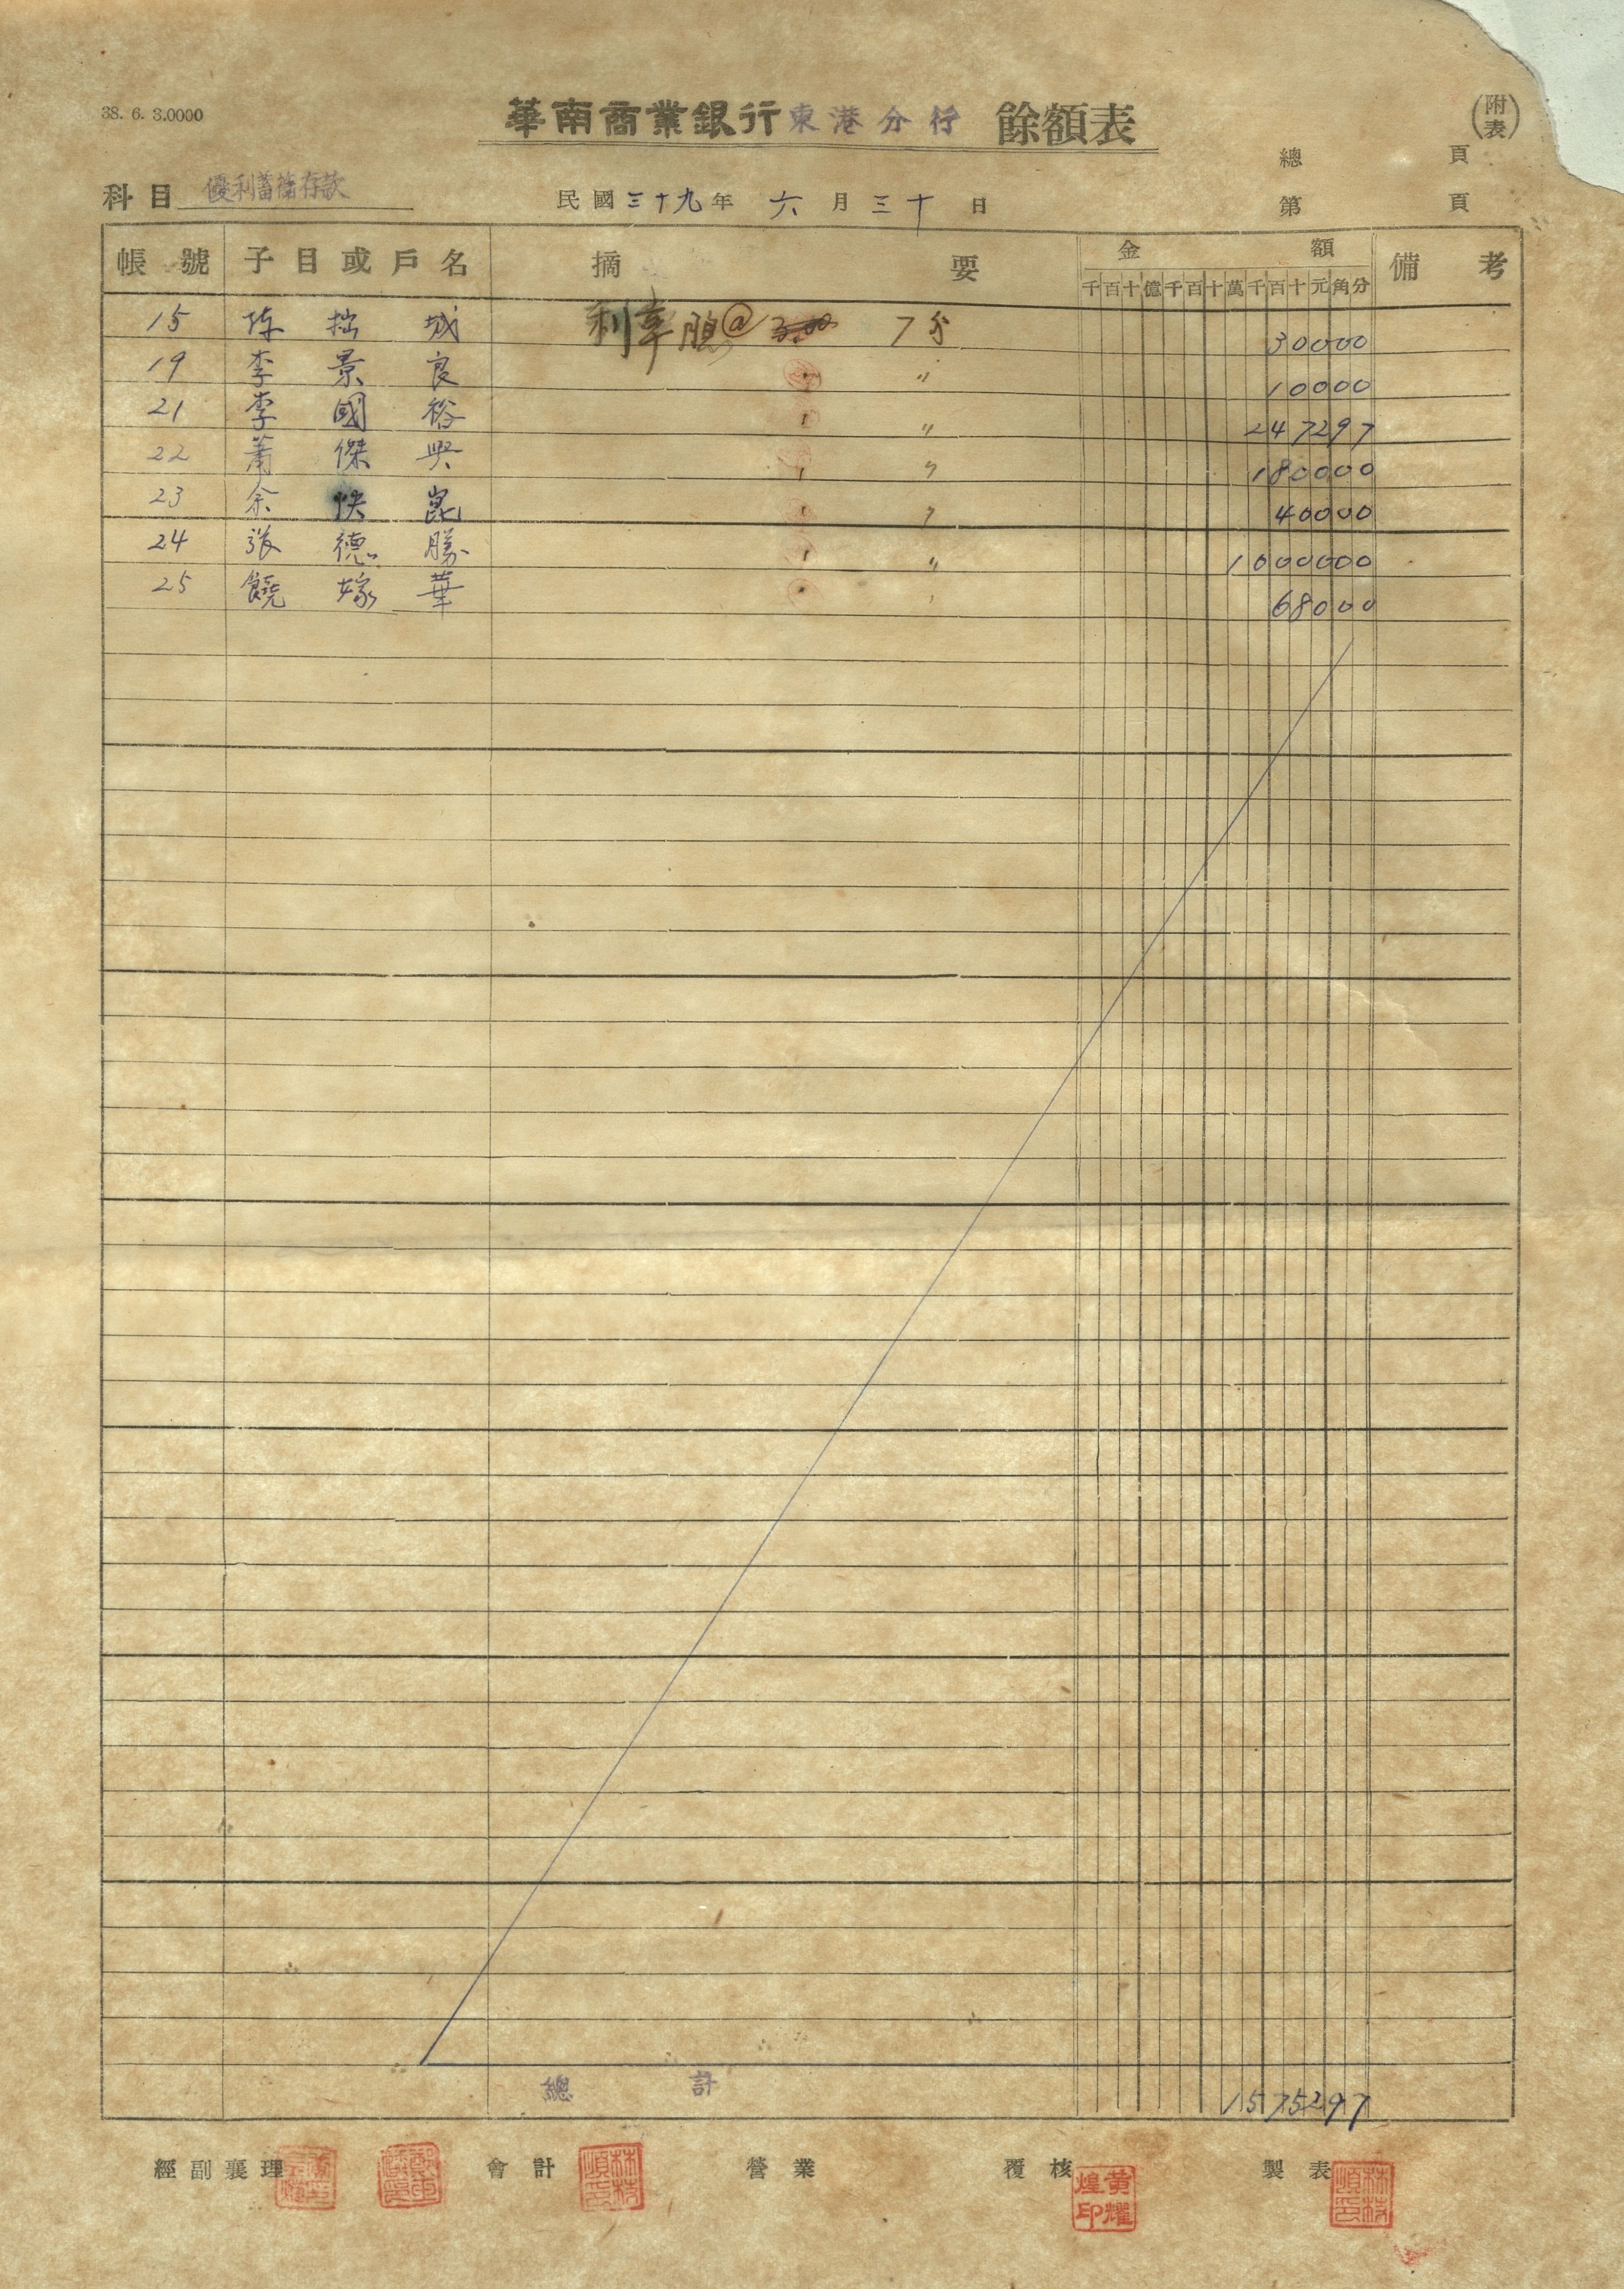 38. 6. 3.0000
華南商業銀行 東港分行 餘額表
(附表)
總 頁
科目 優利蓄儲存款 民國三十九年 六 月 三十 日 第 頁
帳號 子目或戶名 摘要 金額 備考
千百十億千百十萬千百十元角分
15 陈拙城 利率 @ 7分 30000
19 李景良 〃 10000
21 李國裕 〃 247297
22 蕭傑興 〃 180000
23 余快崑 〃 40000
24 張德勝 〃 1000000
25 饒嫁華 68000
總計 1575297
經副襄理 會計 營業 覆核 製表
林枝順印 黃耀煌印 林枝順印